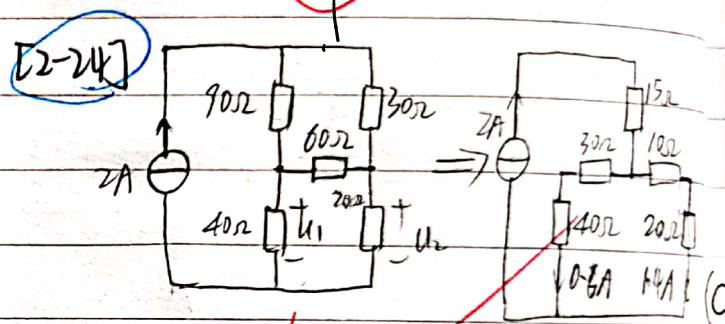 [2-24]
90Ω 30Ω
60Ω
2A
20Ω
40Ω + U₁ - + U₂ -
⇒
2A
15Ω
30Ω 10Ω
40Ω 20Ω
0.6A 1.4A